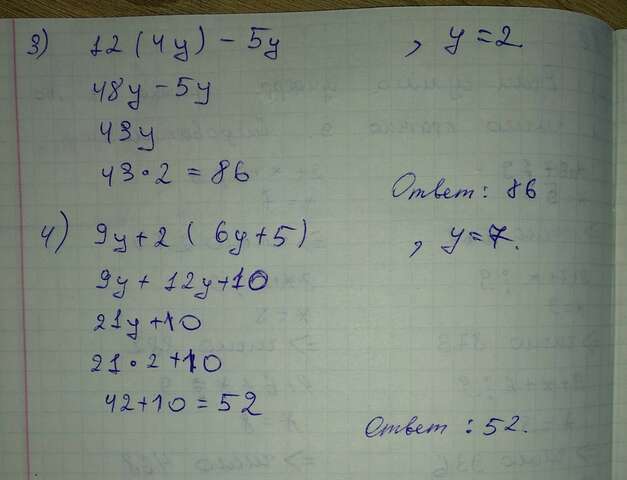 3) 12 (4y) - 5y , y = 2
48y - 5y
43y
43 · 2 = 86
Ответ: 86
4) 9y + 2 (6y + 5) , y = 7.
9y + 12y + 10
21y + 10
21 · 2 + 10
42 + 10 = 52
Ответ: 52.